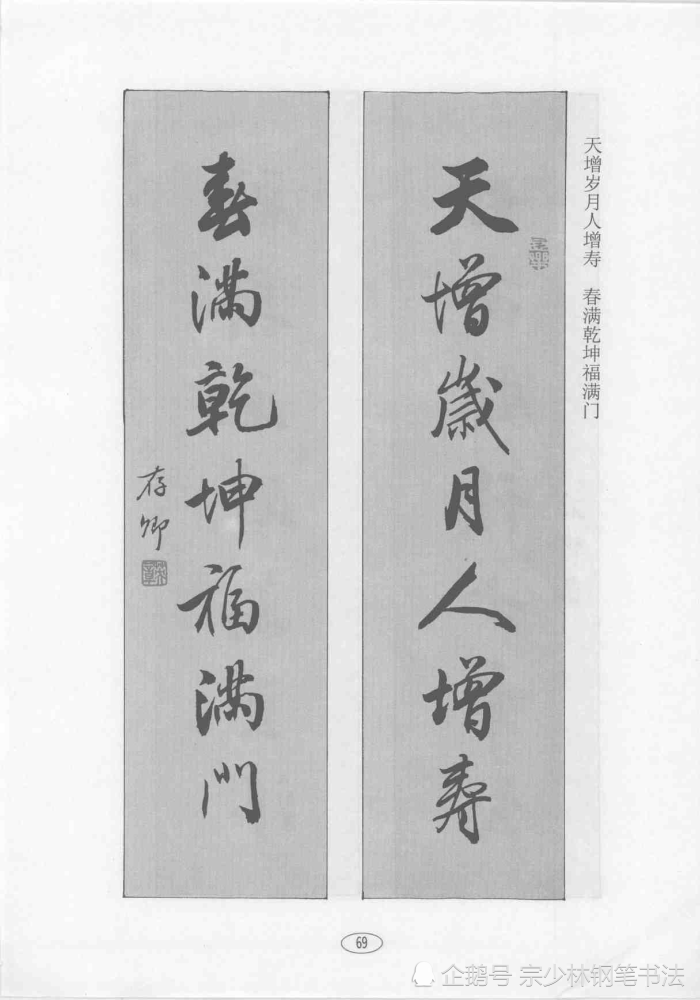 天增岁月人增寿 春满乾坤福满门
天增歲月人增寿
春满乾坤福满門
存卿
69
企鹅号 宗少林钢笔书法